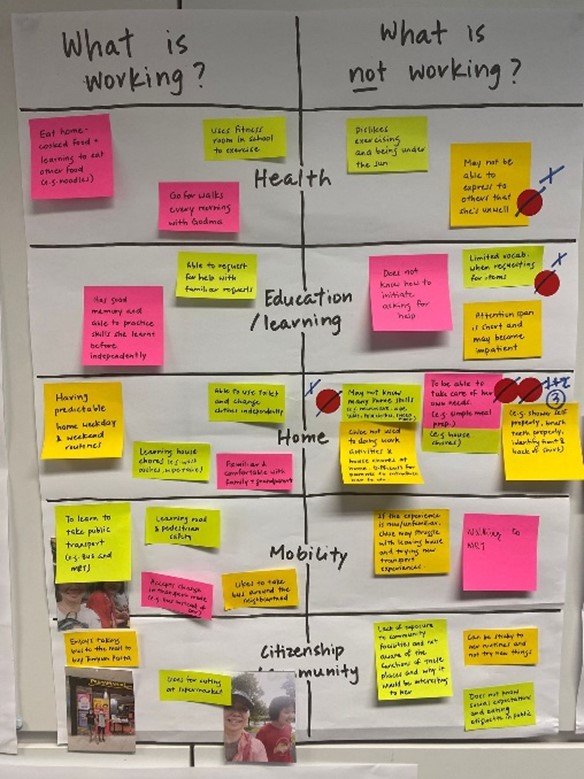 What is
working?
What is
not working?
Eat home-
cooked food +
learning to eat
other food
(e.g. noodles)
Uses fitness
room in school
to exercise
Go for walks
every morning
with Godma
Health
Dislikes
exercising
and being under
the sun
May not be
able to
express to
others that
she's unwell
Able to request
for help with
familiar requests
Has good
memory and
able to practice
skills she learnt
before
independently
Education
/learning
Does not
know how to
initiate
asking for
help
Limited vocab.
when requesting
for items
Attention span
is short and
may become
impatient
Having
predictable
home weekday
& weekend
routines
Able to use toilet
and change
clothes independently
Learning house
chores
Familiar &
comfortable with
family + grandparents
Home
May not know
many home skills
To be able to
take care of her
own needs.
(e.g. simple meal
prep.)
(e.g. house
chores)
not used
to doing work
activities &
house chores at home.
properly, brush
teeth properly,
identify front &
back of shirt)
3
To learn to
take public
transport
(e.g. bus and
MRT)
Learning road
& pedestrian
safety
Accepts change
in transport mode
(e.g. bus instead of
Likes to take
bus around the
neighbourhood
Mobility
If the experience
is new/unfamiliar,
may struggle
with leaving house
and trying new
transport
experiences.
Walking to
MRT
Enjoys taking
bus to the mall to
buy
Citizenship
/community
Goes for outing
at supermarket
Lack of exposure
to community
facilities and not
aware of the
functions of these
places and why it
would be interesting
to her
Can be sticky to
her routines and
not try new things
Does not know
social expectations
and eating
etiquette in public